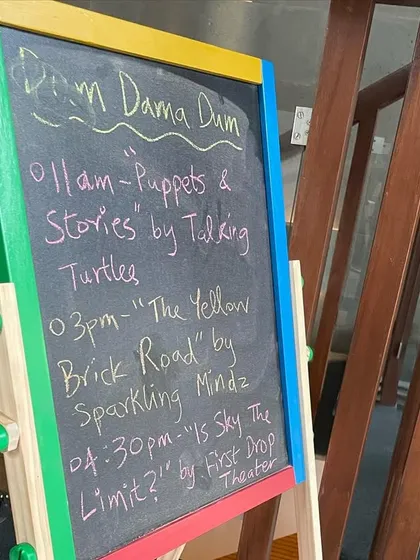 Dum Dama Dum
011am - "Puppets &
Stories" by Talking
Turtles
03pm - "The Yellow
Brick Road" by
Sparkling Mindz
04:30pm - "Is Sky The
Limit?" by First Drop
Theater